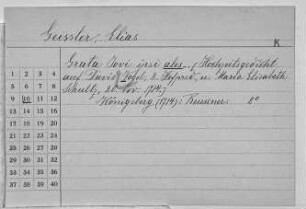 Geissler, Elias
K
Grata Jovi ipsi ales. (Hochzeitsgedicht
auf David Vogel, u. Maria Elisabeth
Schultz, 20. Nov. 1714.)
Königsberg (1714): Reusner. 2°
1 2 3 4
5 6 7 8
9 10 11 12
13 14 15 16
17 18 19 20
21 22 23 24
25 26 27 28
29 30 31 32
33 34 35 36
37 38 39 40